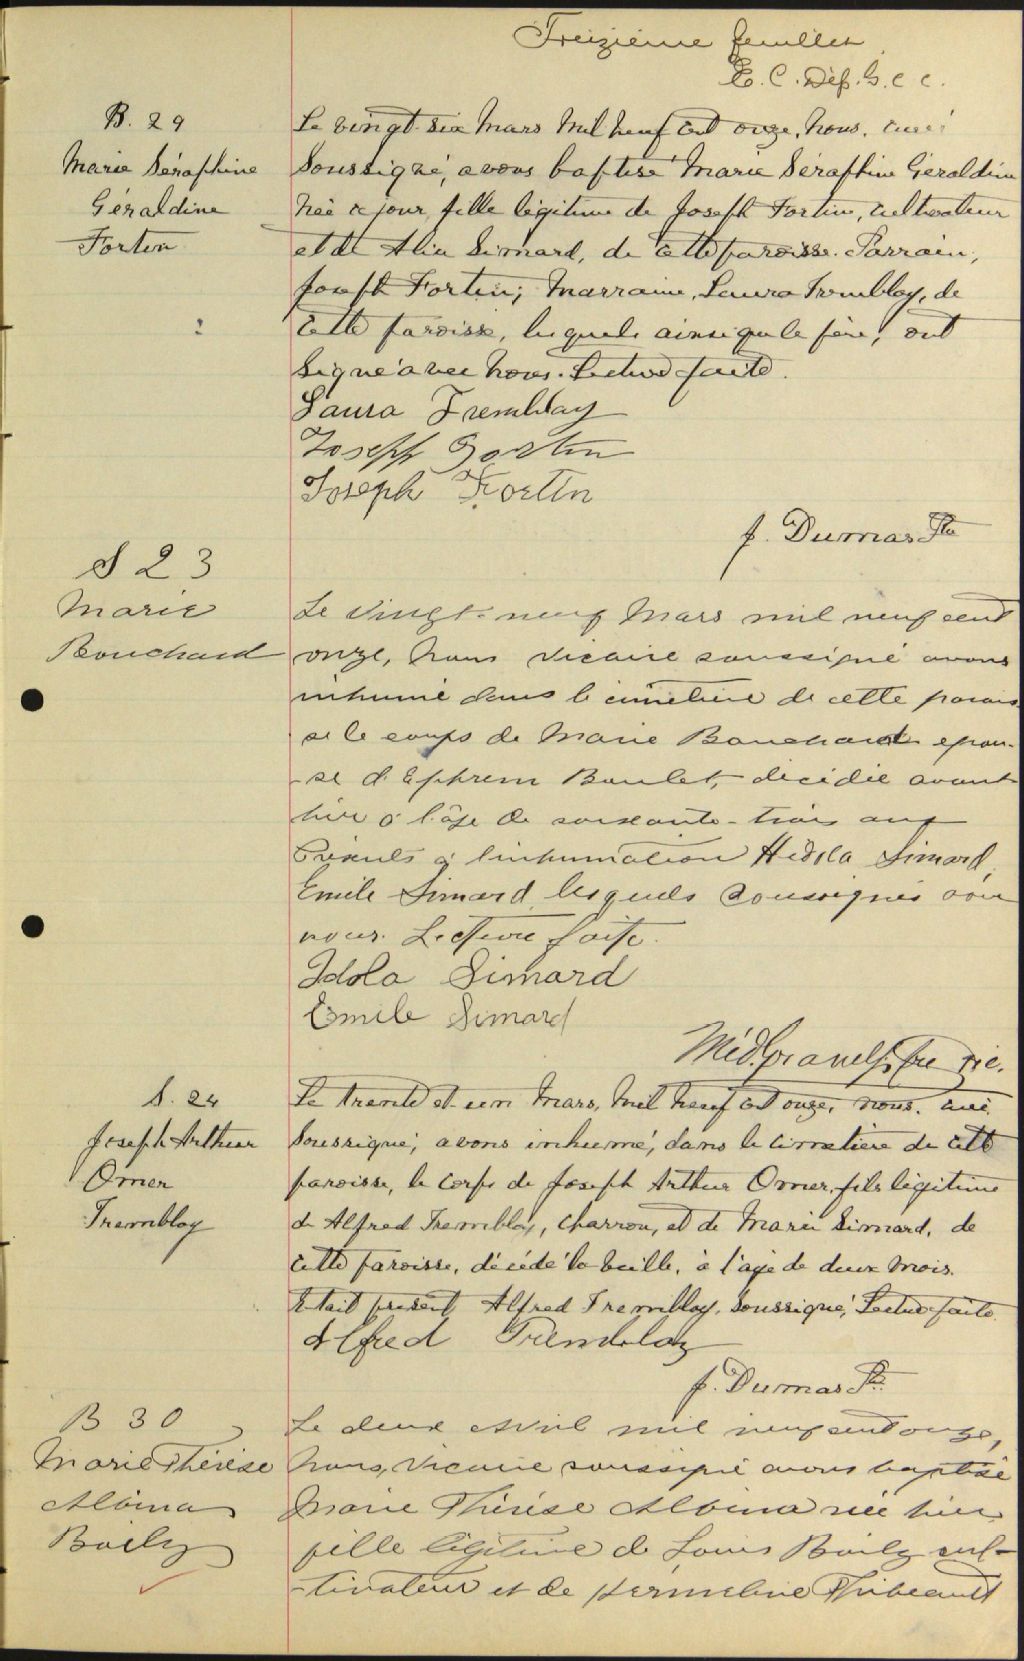 Treizième feuillet
E. C. Dép. G. C. C.
B. 29
Marie Séraphine
Géraldine
Fortin
Le vingt-six Mars Mil neuf cent onze, nous, curé
soussigné, avons baptisé Marie Séraphine Géraldine
née ce jour, fille légitime de Joseph Fortin, cultivateur
et de Alia Simard, de cette paroisse. Parrain,
Joseph Fortin; Marraine, Laura Tremblay, de
cette paroisse, lesquels ainsi que le père, ont
signé avec nous. Lecture faite.
Laura Tremblay
Joseph Fortin
Joseph Fortin
J. Dumas Ptre
S 23
Marie
Bouchard
Le vingt-neuf Mars mil neuf cent
onze, nous vicaire soussigné avons
inhumé dans le cimetière de cette parois-
se le corps de Marie Bouchard épou-
se d'Ephrem Boulet, décédée avant
hier à l'âge de soixante-trois ans
Présents à l'inhumation Hidola Simard,
Emile Simard, lesquels soussignés avec
nous. Lecture faite.
Idola Simard
Emile Simard
ptre vic.
S. 24
Joseph Arthur
Omer
Tremblay
Le trente et un Mars, Mil neuf cent onze, nous, curé,
soussigné, avons inhumé, dans le cimetière de cette
paroisse, le corps de Joseph Arthur Omer, fils légitime
de Alfred Tremblay, charron, et de Marie Simard, de
cette paroisse, décédé la veille, à l'age de deux mois.
Etait présent, Alfred Tremblay, soussigné, Lecture faite.
Alfred Tremblay
J. Dumas Ptre
B 30
Marie Thérèse
Albina
Boily
Le deux Avril mil neuf cent onze,
nous, vicaire soussigné avons baptisé
Marie Thérèse Albina née hier
fille légitime de Louis Boily cul-
-tivateur et de Herméline Thibeault